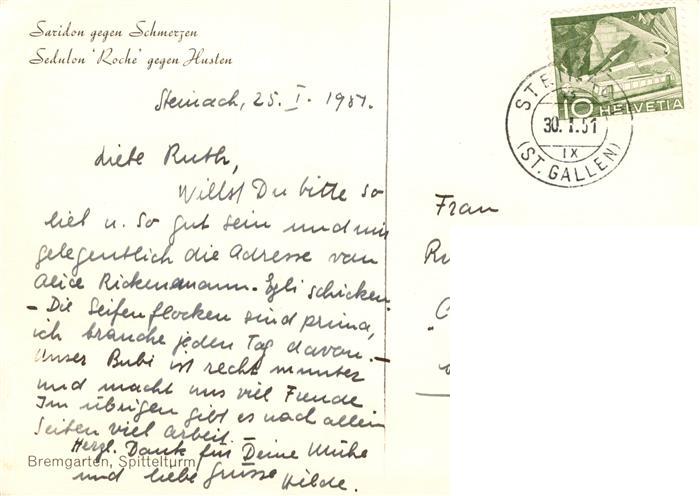 Saridon gegen Schmerzen
Sedulon 'Roche' gegen Husten
Steinach, 25. I. 1951.
Liebe Ruth,
Willst Du bitte so
lieb u. so gut sein und mir
gelegentlich die Adresse von
Alice Rickenmann-Egli schicken
- Die Seifenflocken sind prima,
ich brauche jeden Tag davon. -
Unser Bubi ist recht munter
und macht uns viel Freude
Im übrigen gibt es nach allen
Seiten viel Arbeit.
Herzl. Dank für Deine Mühe
und liebe Grüsse Hilde.
Bremgarten, Spittelturm
10 HELVETIA
STEINACH
30.I.51
IX
(ST. GALLEN)
Frau